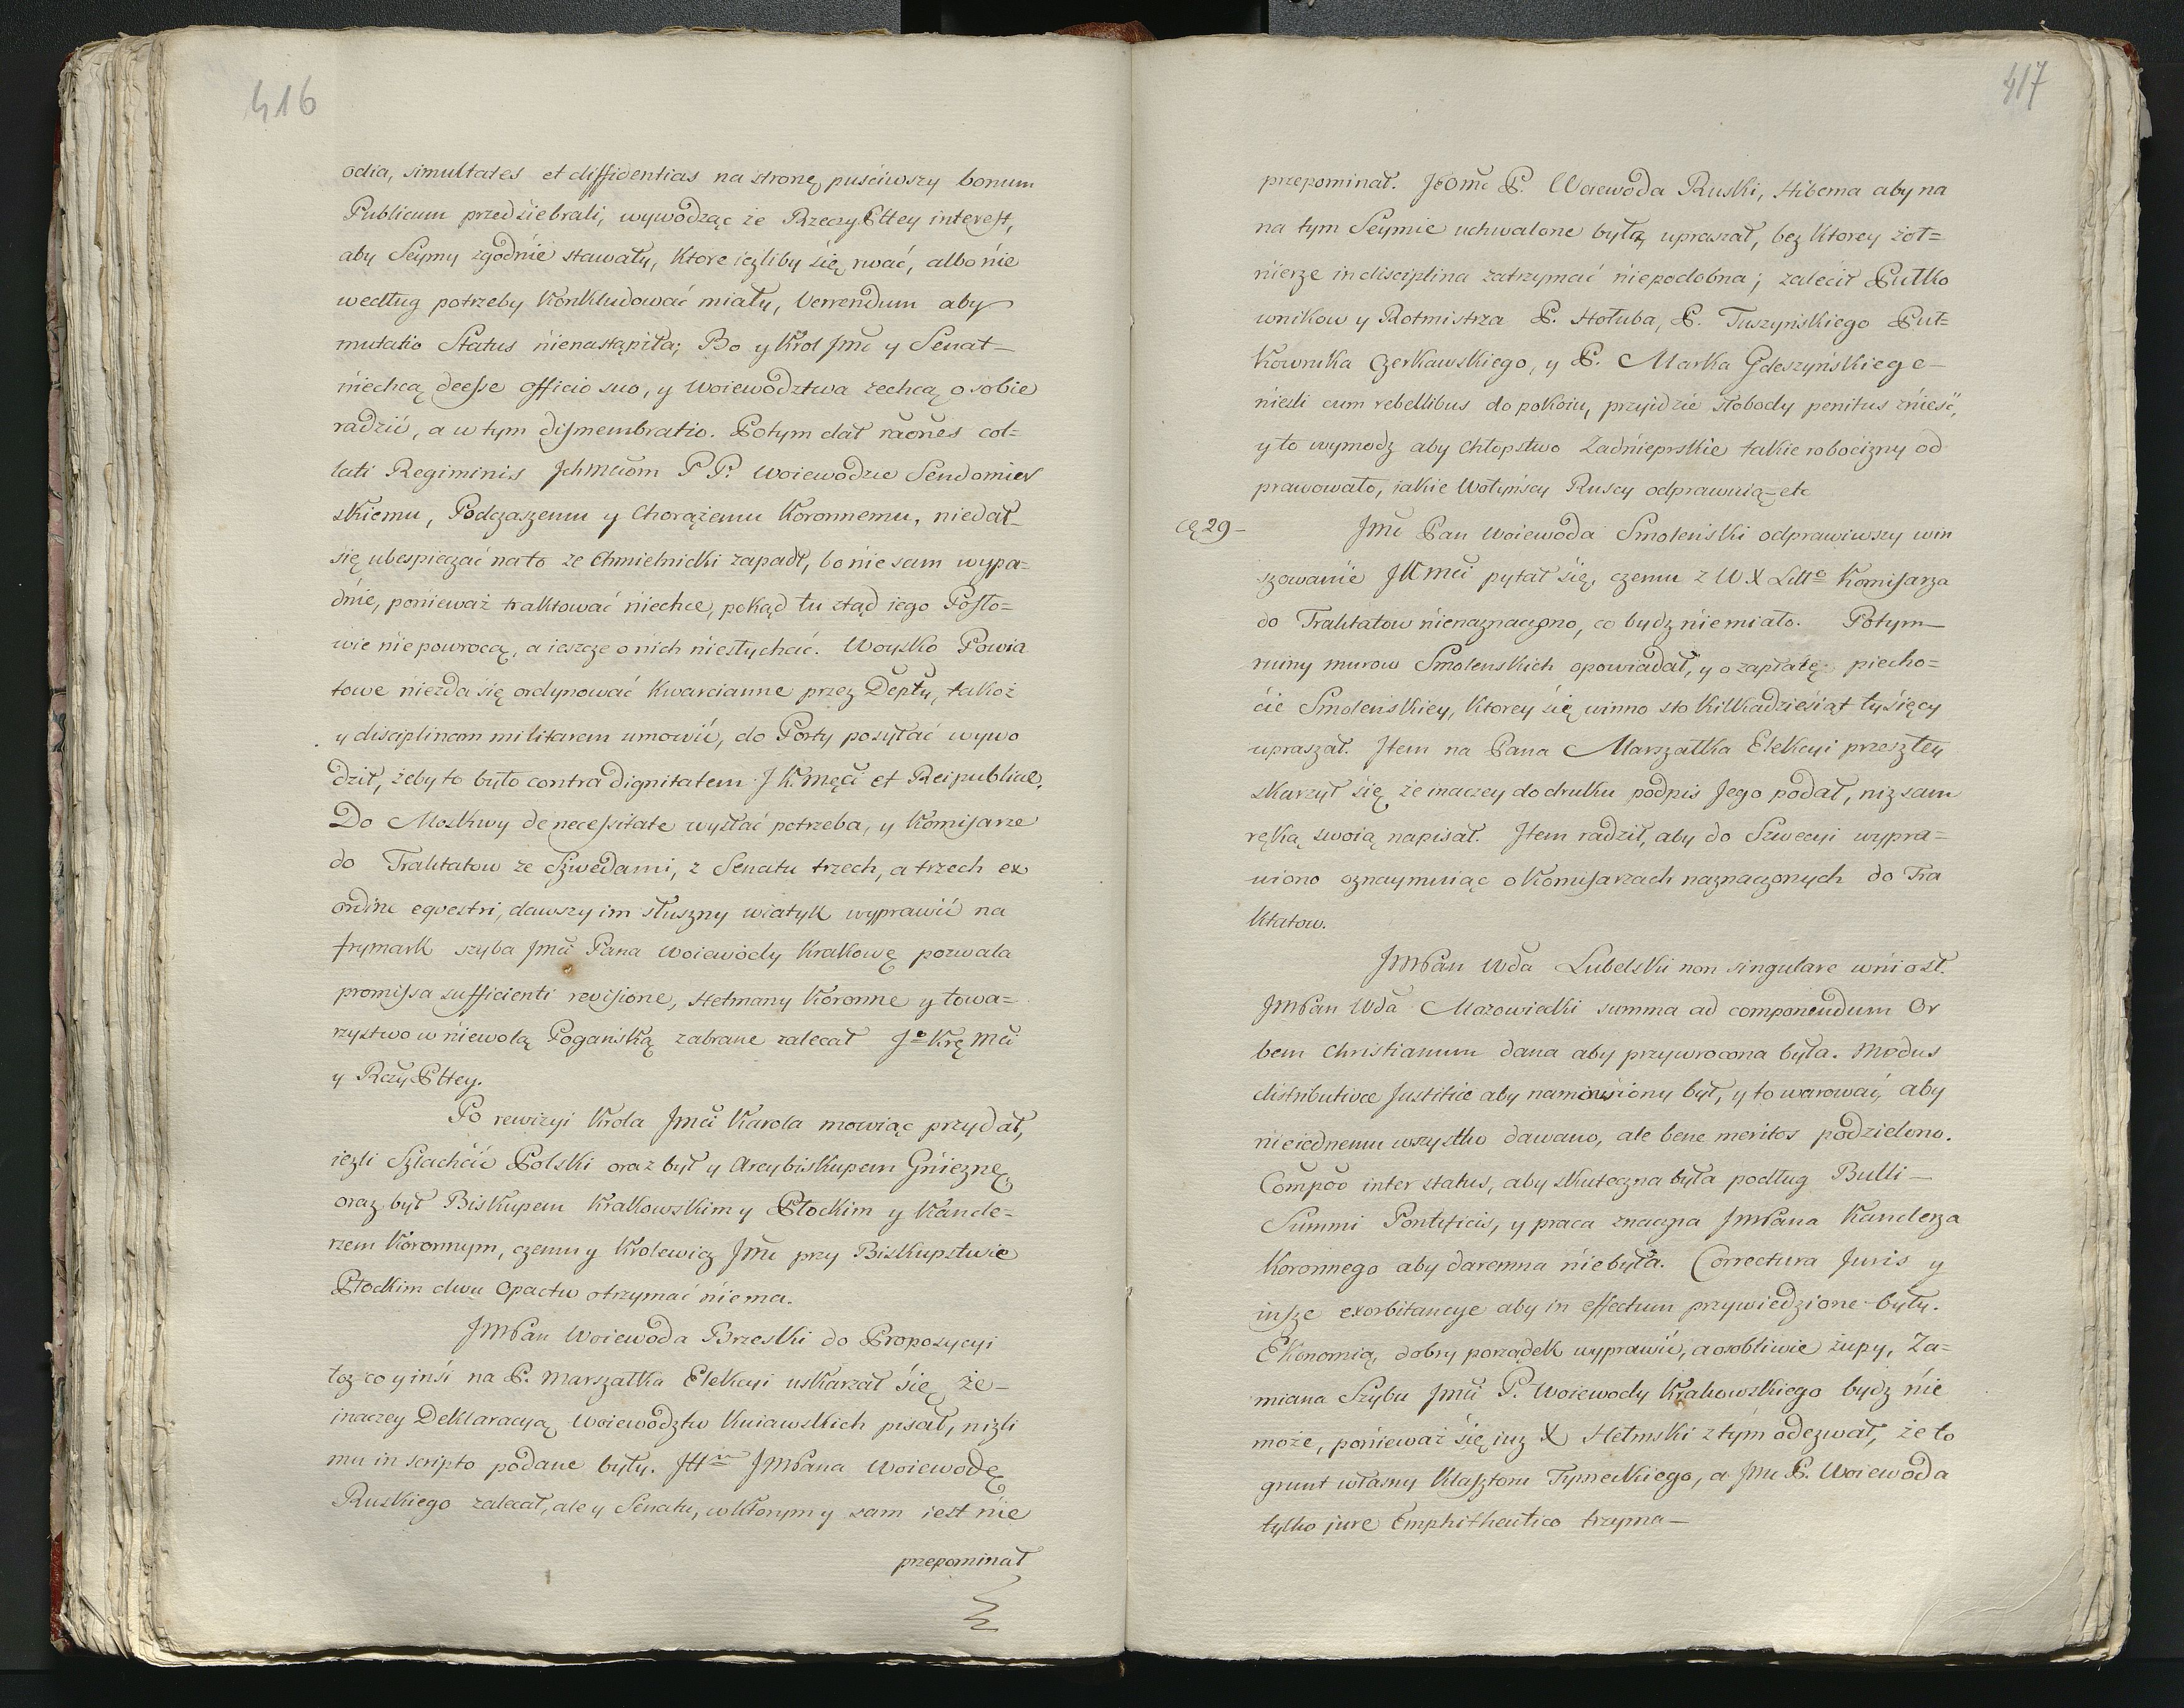 416
odia, simultates et diffidentias na stronę puściwszy bonum
Publicum przedsiebrali, wywodząc że RzeczyPltey interest,
aby Seymy zgodnie stawały, ktore iezliby się rwać, albo nie
według potrzeby konkludować miały, Verendum aby
mutatio Status nienastąpiła; Bo y Krol Jmć y Senat
niechcą deesse officio suo, y woiewodztwa zechcą o sobie
radzić, a w tym dismembratio. Potym dał raões col=
lati Regiminis Jchmciom P P. Woiewodzie Sendomier
skiemu, Podczaszemu y Chorążemu Koronnemu, niedał
się ubespieczać na to ze Chmielnicki zapadł, bo nie sam wypa=
dnie, ponieważ traktować niechce, pokąd tu ztąd iego Posło=
wie niepowrocą, a ieszcze o nich niesłychać. Woysko Powia
towe niezda się ordynować kwarcianne przez Depty, takoż
y disciplinam militarem umowić, do Porty posyłać wywo
dził, żeby to było contra dignitatem J K. Mści et Reipublicae.
Do Moskwy de necessitate wysłać potrzeba, y Komisarze
do Traktatow ze Szwedami, z Senatu trzech, a trzech ex
ordine eqvestri, dawszy im słuszny wiatyk wyprawić na
frymark szyba Jmći Pana Woiewody Krakowę pozwala
promissa sufficienti revisione, Hetmany Koronne y towa=
rzystwo w niewolą Pogańską zabrane zalecał Jº Krę Mći
y RczyPltey.
Po rewizyi Krola Jmći Karola mowiąc przydał,
iezli Szlachcic Polski oraz był y Arcybiskupem Gnieznę
oraz był Biskupem Krakowskim y Płockim y Kancle=
rzem Koronnym, czemu y Krolewicz Jmć przy Biskupstwie
Płockim dwu Opactw otrzymać niema.
JMPan Woiewoda Brzeski do Propozycyi
toz co y insi na P. Marszałka Elekcyi uskarżał się, że
inaczey Deklaracyą Woiewodztw Kuiawskich pisał, nizli
mu in scripto podane były. JMPana Woiewodę
Ruskiego zalecał, ale y Senatu, w ktorym y sam iest nie
przepominał
417
przepominał. Jeomć P. Woiewoda Ruski, Hiberna aby na
na tym Seymie uchwalone były upraszał, bez ktorey żoł=
nierze in disciplina zatrzymać niepodobna; zalecił Pułko
wnikow y Rotmistrza P. Hołuba, P. Tuszyńskiego Puł=
kownika Czerkawskiego, y P. Marka Gdeszyńskiego
niezli cum rebellibus do pokoiu, przyidzie słobody penitus znieść,
y to wymodz aby chłopstwo Zadnieprskie takie robocizny od
prawowało, iakie Wołyńscy Ruscy odprawuią etc
29
Jmć Pan Woiewoda Smoleński odprawiwszy win
szowanie JKMći pytał się, czemu z W X Littº Komisarza
do Traktatow nienaznaczono, co bydz niemiało. Potym
ruiny murow Smolenskich opowiadał, y o zapłatę piecho=
cie Smoleńskiey, ktorey się winno sto kilkadziesiąt tysięcy
upraszał. Item na Pana Marszałka Elekcyi przeszłey
skarzył się że inaczey do druku podpis Jego podał, niz sam
ręką swoią napisał. Item radził, aby do Szwecyi wypra=
wiono oznaymuiąc o Komisarzach naznaczonych do Tra
ktatow.
JMPan Wda Lubelski non singulare wniosł.
JMPan Wda Mazowiecki summa ad componendum Or
bem Christianum dana aby przywrocona była. Modus
distributivae Justitiae aby namowiony był, y to warować, aby
nieiednemu wszystko dawano, ale bene meritos podzielono.
Compõõ inter status, aby skuteczna była podług Bulli
Summi Pontificis, y praca znaczna JMPana Kanclerza
Koronnego aby daremna niebyła. Correctura Juris y
insze exorbitancye aby in effectum przywiedzione były.
Ekonomią, dobry porządek wyprawić, a osobliwie żupy, Za=
miana Szybu Jmći P. Woiewody Krakowskiego bydz nie
może, ponieważ się iuz X Hetmski z tym odezwał, że to
grunt własny Klasztoru Tynieckiego, a Jmć P. Woiewoda
tylko jure Emphitheutico trzyma